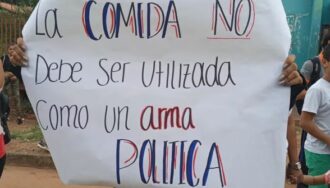 La COMIDA NO
Debe Ser UTILIZADA
Como un arma
POLITICA